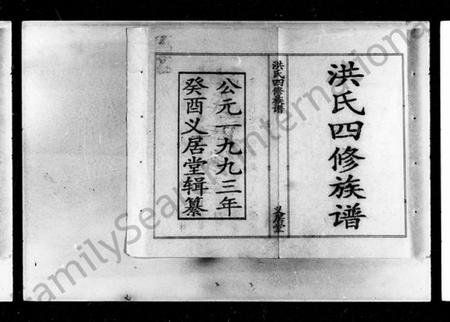 洪氏四修族谱
洪氏四修族谱
义居堂
公元一九九三年
癸酉义居堂辑纂
FamilySearch International